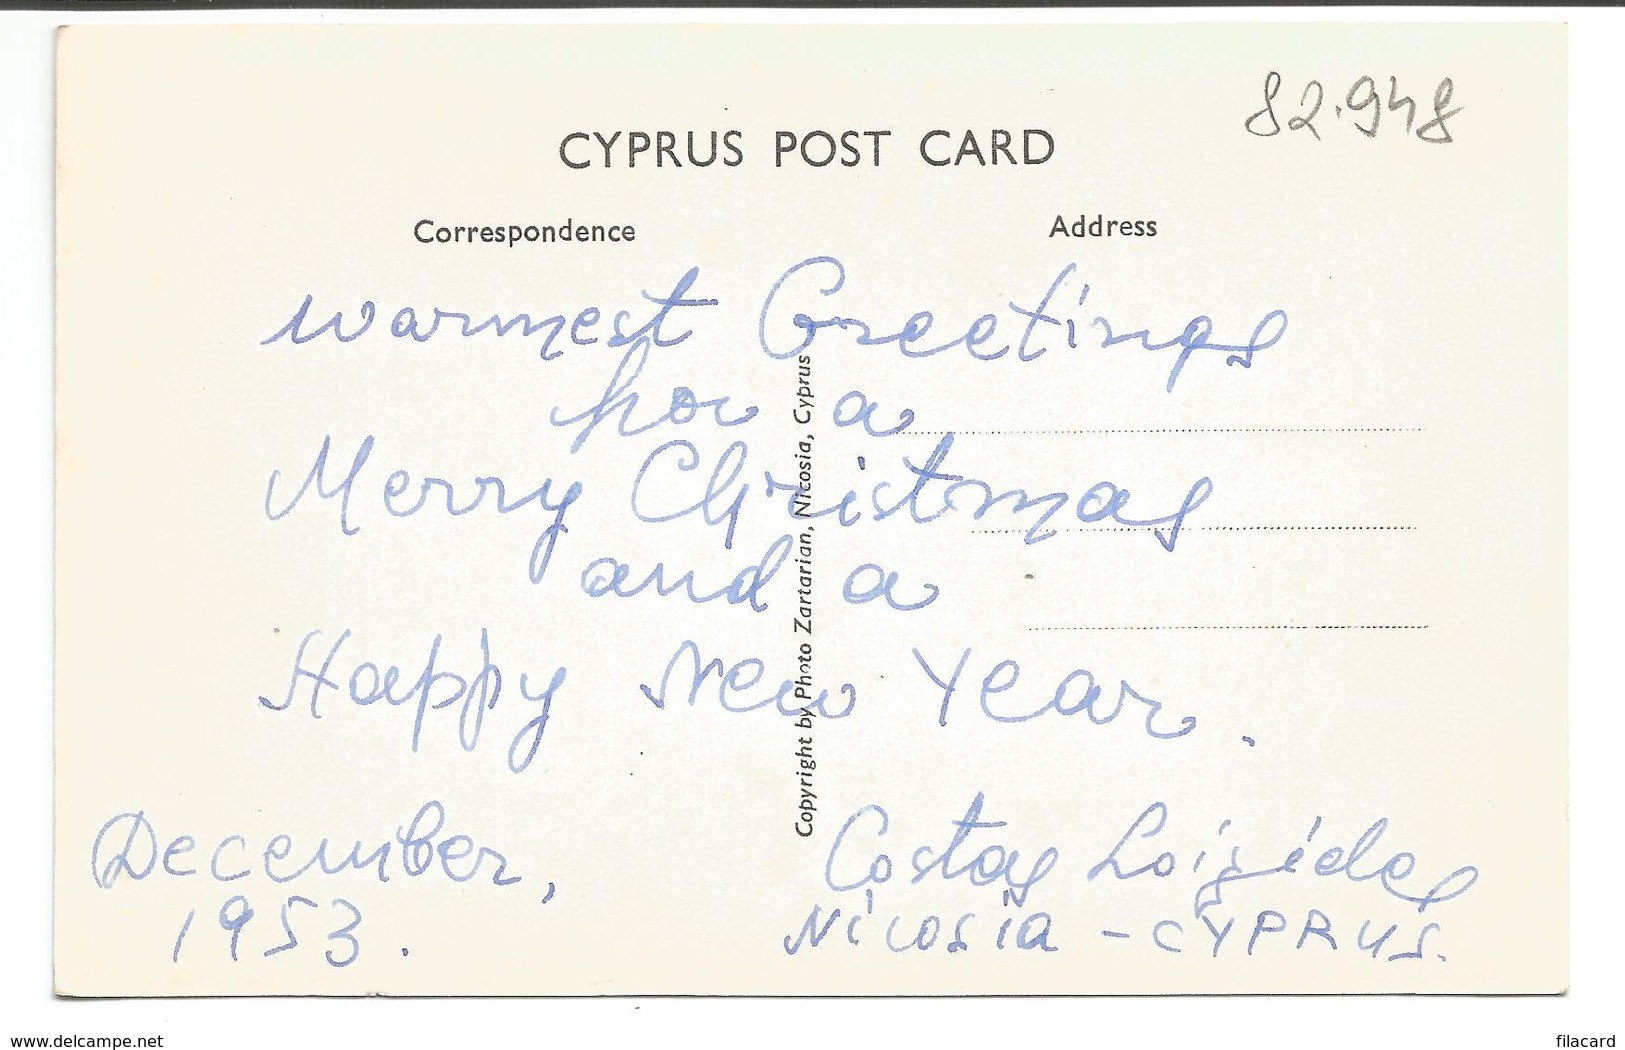 82.948
CYPRUS POST CARD
Correspondence
Address
warmest Greetings
for a
Merry Christmas
and a
Happy New Year.
Copyright by Photo Zartarian, Nicosia, Cyprus
December,
1953.
Costas Loizides
Nicosia - CYPRUS.
www.delcampe.net
filacard